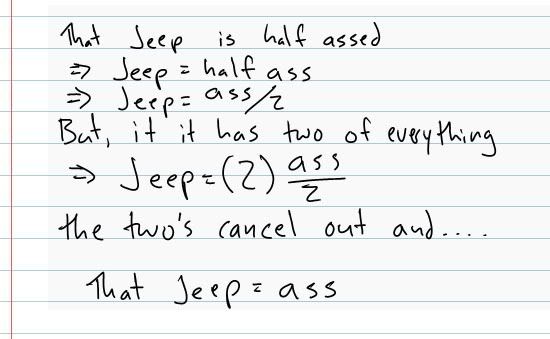 That Jeep is half assed
⇒ Jeep = half ass
⇒ Jeep = ass/2
But, it it has two of everything
⇒ Jeep = (2) ass/2
the two's cancel out and....
That Jeep = ass